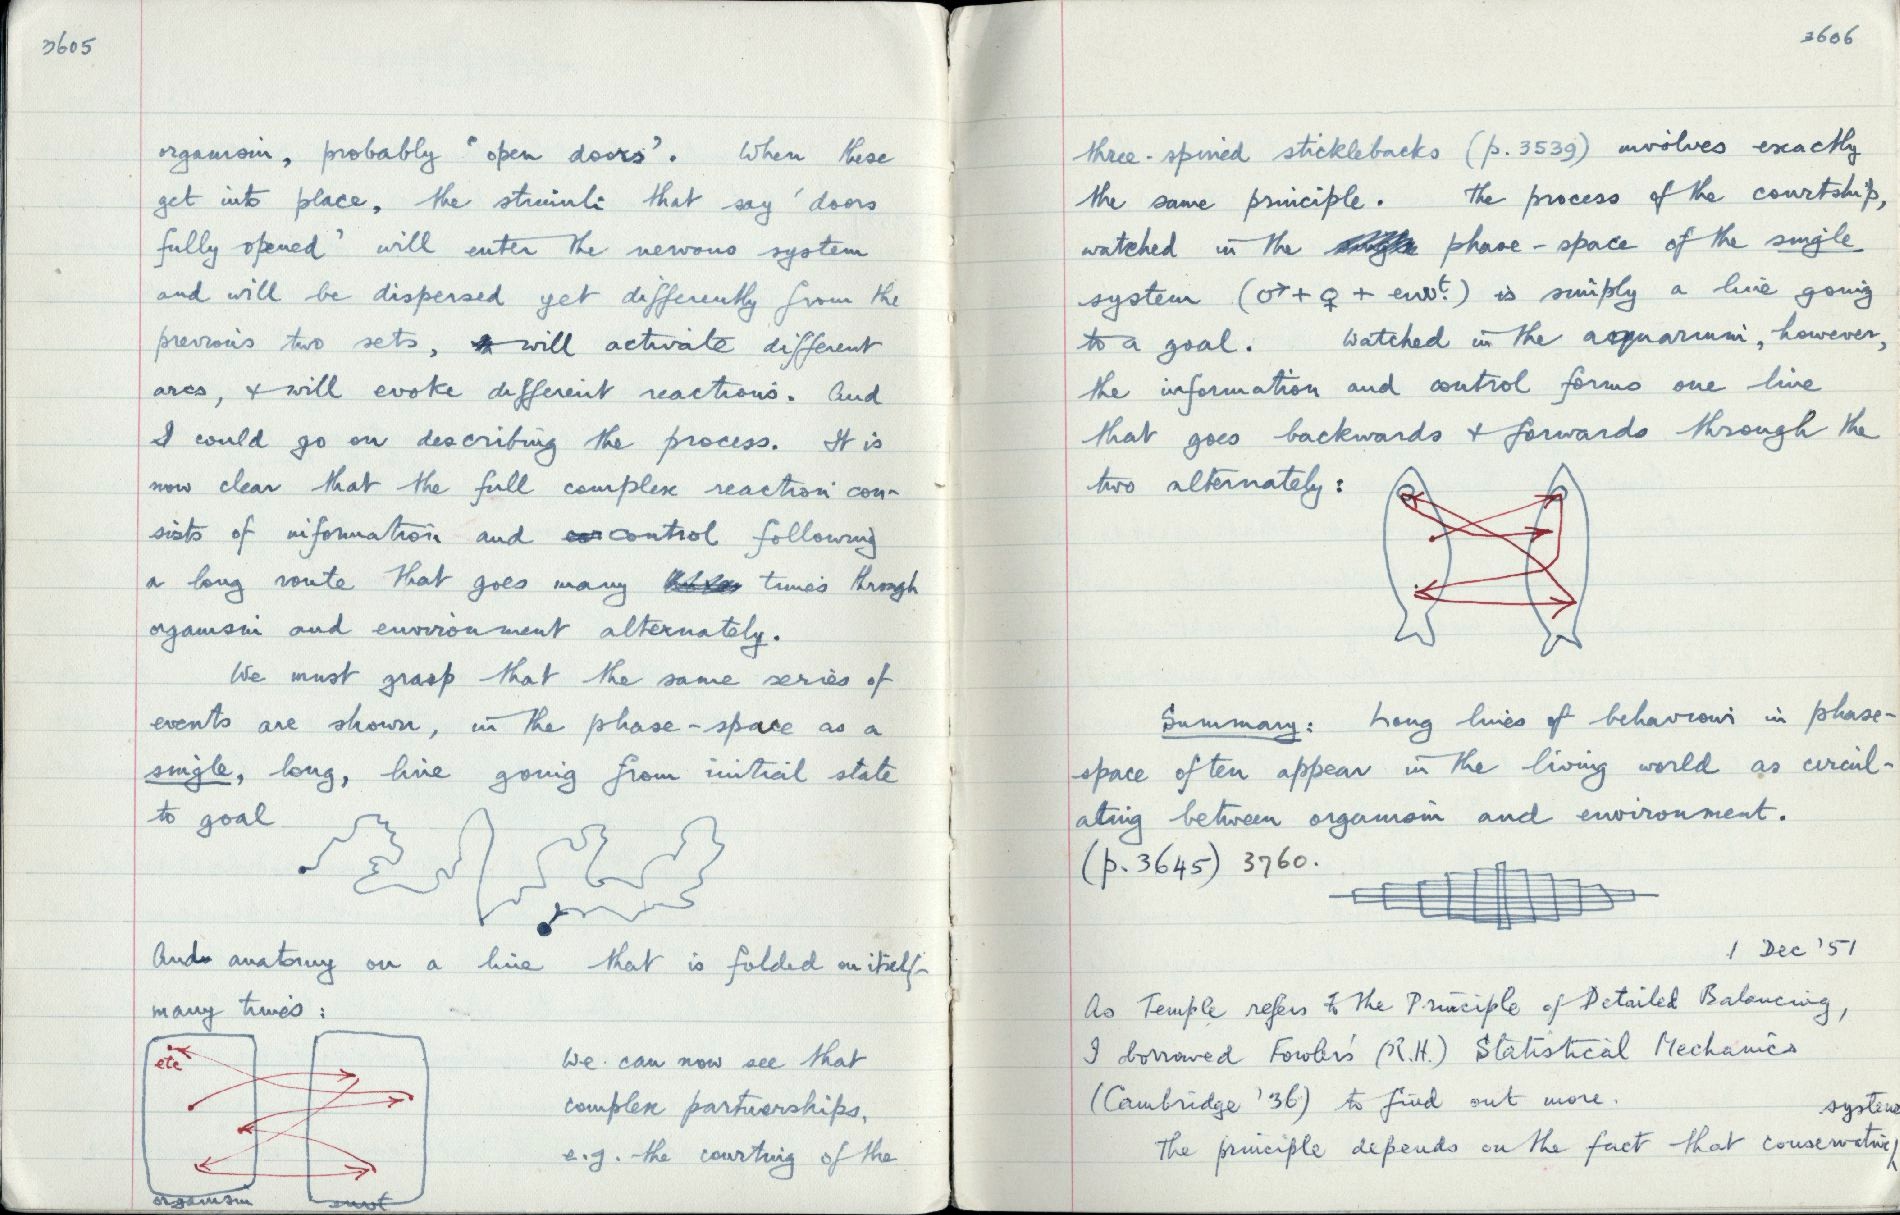 3605
organism, probably "open doors". When these
get into place, the stimuli that say 'doors
fully opened' will enter the nervous system
and will be dispersed yet differently from the
previous two sets, will activate different
arcs, & will evoke different reactions. And
I could go on describing the process. It is
now clear that the full complex reaction con-
sists of information and control following
a long route that goes many times through
organism and environment alternately.
We must grasp that the same series of
events are shown, in the phase-space as a
single, long, line going from initial state
to goal
And anatomy on a line that is folded on itself
many times:
etc
organism envt
We can now see that
complex partnerships,
e.g. the courting of the
3606
three-spined sticklebacks (p.3539) involves exactly
the same principle. The process of the courtship,
watched in the phase-space of the single
system (♂ + ♀ + envt.) is simply a line going
to a goal. Watched in the aquarium, however,
the information and control forms one line
that goes backwards & forwards through the
two alternately:
Summary: Long lines of behaviour in phase-
space often appear in the living world as circul-
ating between organism and environment.
(p.3645) 3760.
1 Dec '51
As Temple refers to the Principle of Detailed Balancing,
I borrowed Fowler's (R.H.) Statistical Mechanics
(Cambridge '36) to find out more.
systems
The principle depends on the fact that conservative